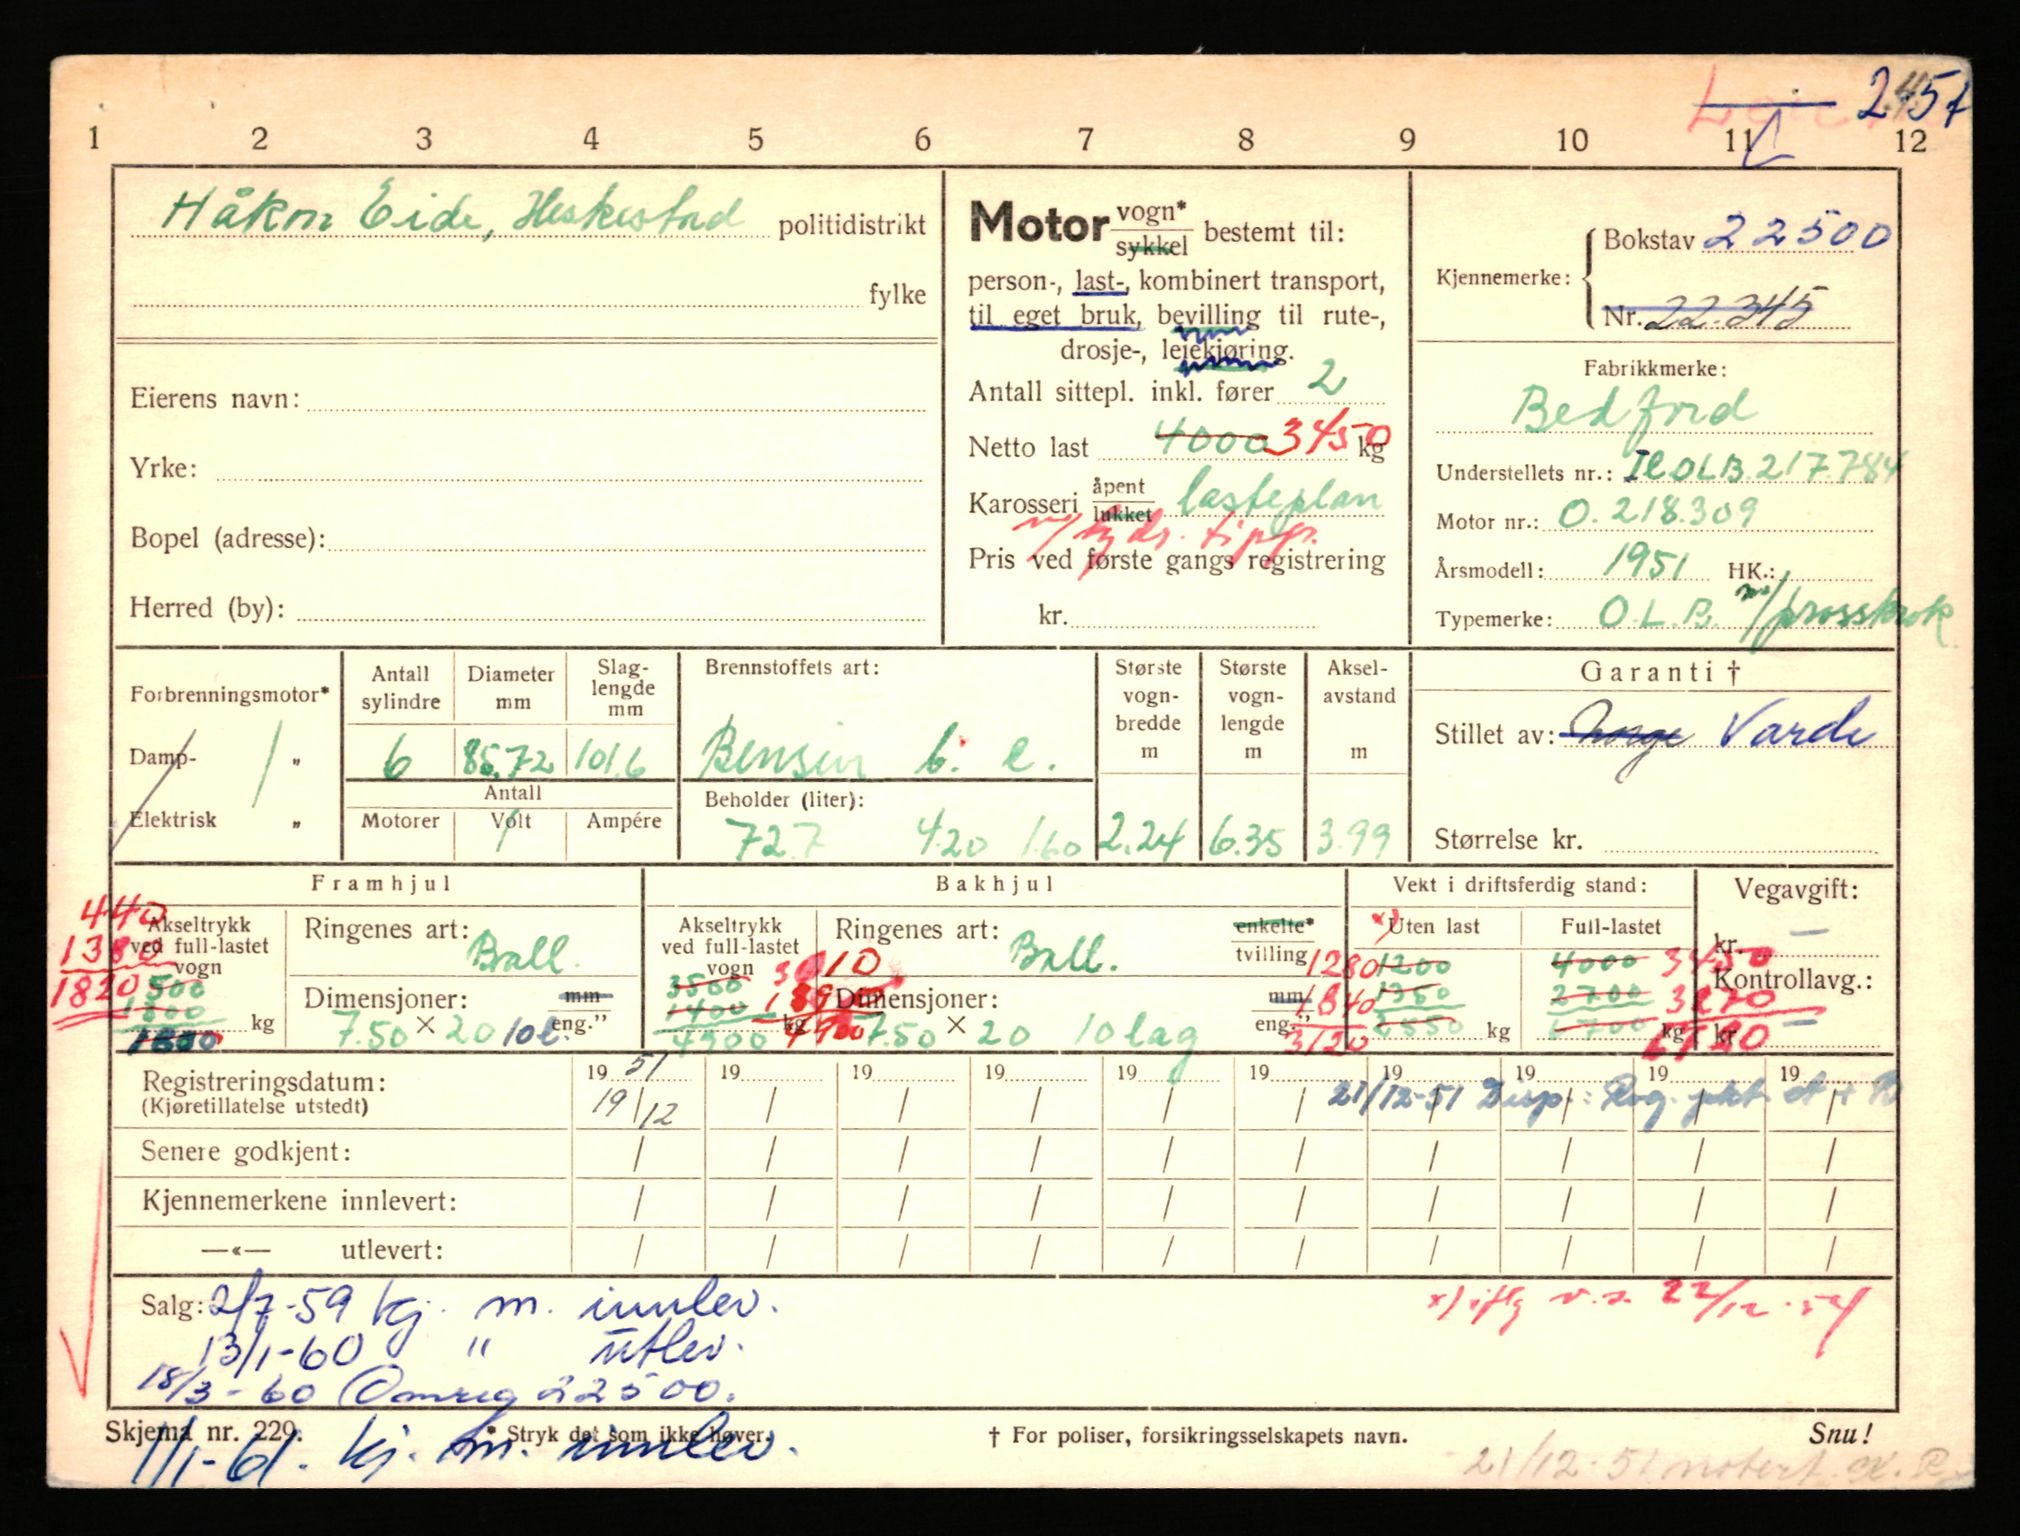 2457
1 2 3 4 5 6 7 8 9 10 11 12
Håkon Eide, Heskestad politidistrikt
fylke
Eierens navn:
Yrke:
Bopel (adresse):
Herred (by):
Motor vogn* sykkel bestemt til:
person-, last-, kombinert transport,
til eget bruk, bevilling til rute-,
drosje-, leiekjøring.
Antall sittepl. inkl. fører 2
Netto last 4000 3450 kg
Karosseri åpent lukket lasteplan
m/hydr. tipp.
Pris ved første gangs registrering
kr.
Kjennemerke:
Bokstav 22500
Nr. 22.345
Fabrikkmerke:
Bedford
Understellets nr.: OLB.217.784
Motor nr.: O.218.309
Årsmodell: 1951 HK.:
Typemerke: O.L.B. m/prosskrok
Forbrenningsmotor*
Damp- „
Elektrisk „
Antall sylindre
Diameter mm
Slaglengde mm
6 85,72 101,6
Antall
Motorer Volt Ampére
Brennstoffets art:
Bensin b. e.
Beholder (liter):
72.7 4.20 1.60
Største vogn-bredde m
2.24
Største vogn-lengde m
6.35
Aksel-avstand m
3.99
Garanti †
Stillet av: Norge Varde
Størrelse kr.
Framhjul
440
1380
1820
Akseltrykk ved full-lastet vogn
500
1300
1800 kg
Ringenes art: Ball.
Dimensjoner: mm eng."
7.50 × 20 10 l.
Bakhjul
Akseltrykk ved full-lastet vogn
3500
1400
4900 kg
4900
Ringenes art: Ball.
enkelte* tvilling
Dimensjoner: mm eng."
7.50 × 20 10 lag
Vekt i driftsferdig stand:
x) Uten last Full-lastet
1280 1200 4000 3450
1840 1350 2700 3270
3120 2550 kg 6700 kg
Vegavgift:
kr. —
Kontrollavg.:
kr. —
Registreringsdatum: 19 51 19 19 19 19 19 19 19 19 19
(Kjøretillatelse utstedt) 19/12
21/12-51 Disp.:
Senere godkjent:
Kjennemerkene innlevert:
—«— utlevert:
Salg: 2/7-59 kj. m. innlev.
13/1-60 " utlev.
18/3-60 Omreg 22500.
x) iflg v.s.
Skjema nr. 229.
* Stryk det som ikke høver.
† For poliser, forsikringsselskapets navn.
Snu!
1/1-61. kj. m. innlev.
21/12-51 notert